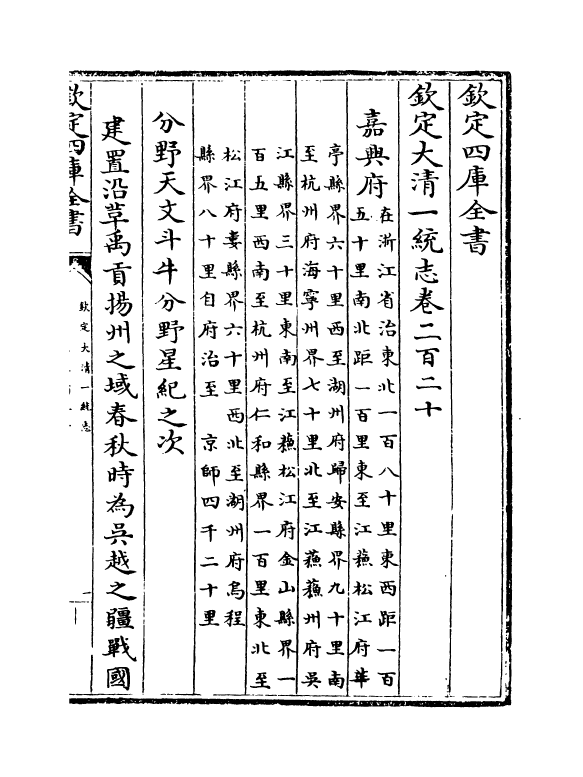 欽定四庫全書
欽定大清一統志卷二百二十
嘉興府
在浙江省治東北一百八十里東西距一百
五十里南北距一百里東至江蘓松江府華
亭縣界六十里西至湖州府歸安縣界九十里南
至杭州府海寧州界七十里北至江蘓蘓州府吳
江縣界三十里東南至江蘓松江府金山縣界一
百五里西南至杭州府仁和縣界一百里東北至
松江府婁縣界六十里西北至湖州府烏程
縣界八十里自府治至 京師四千二十里
分野天文斗牛分野星紀之次
建置沿革禹貢揚州之域春秋時為吳越之疆戰國
欽定四庫全書
欽定大清一統志
一